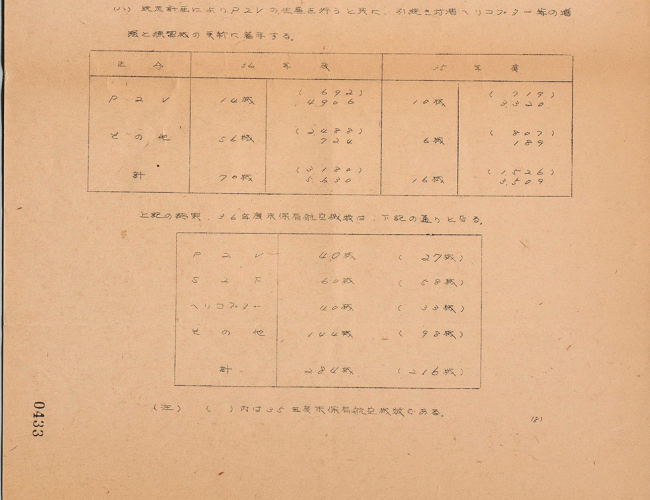 (ハ) 既定計画によりP2Vの生産を行うと共に、引続き対潜ヘリコプター等の増
強と練習機の更新に着手する。
区分 36年度 35年度
P2V 14機 (692) 4906 10機 (719) 3320
その他 56機 (2488) 724 6機 (807) 189
計 70機 (3180) 5630 16機 (1526) 3,509
上記の結果、36年度末保有航空機数は、下記の通りとなる。
P2V 40機 (27機)
S2F 60機 (58機)
ヘリコプター 40機 (33機)
その他 144機 (98機)
計 284機 (216機)
(注) ( )内は35年度末保有航空機数である。
(8)
0433